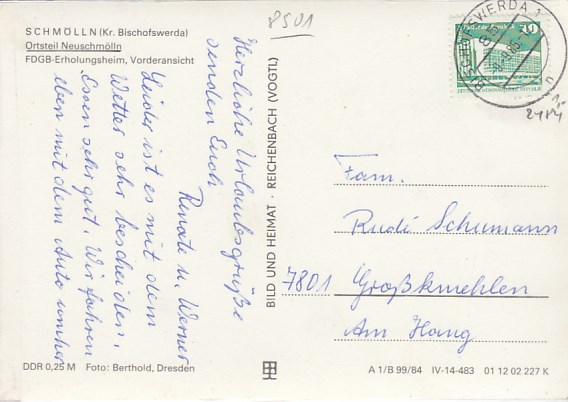 SCHMÖLLN (Kr. Bischofswerda)
Ortsteil Neuschmölln
FDGB-Erholungsheim, Vorderansicht
8501
Herzliche Urlaubsgrüße
senden Euch
Renate u. Werner
Leider ist es mit dem
Wetter sehr bescheiden.
Essen sehr gut. Wir fahren
eben mit dem Auto umher
BILD UND HEIMAT · REICHENBACH (VOGTL)
BISCHOFSWERDA 1
10
2414
Fam.
Rudi Schumann
7801 Großkmehlen
Am Hang
DDR 0,25 M Foto: Berthold, Dresden
A 1/B 99/84 IV-14-483 01 12 02 227 K